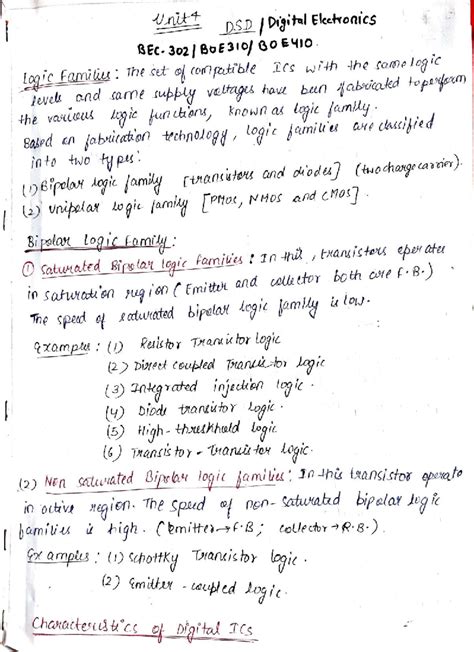 Unit 4
DSD / Digital Electronics
BEC-302/BOE310/BOE410.
Logic Families: The set of compatible ICs with the same logic
levels and same supply voltages have been fabricated to perform
the various logic functions, known as logic family.
Based on fabrication technology, logic families are classified
into two types:
(1) Bipolar logic family [transistors and diodes] (two charge carrier).
(2) Unipolar logic family [PMOS, NMOS and CMOS].
Bipolar Logic Family:
① Saturated Bipolar logic families: In this, transistors operates
in saturation region (Emitter and collector both are F.B.)
The speed of saturated bipolar logic family is low.
Examples: (1) Resistor Transistor logic
(2) Direct coupled Transistor logic
(3) Integrated injection logic.
(4) Diode transistor logic.
(5) High-threshhold logic
(6) Transistor-Transistor logic.
(2) Non saturated Bipolar logic families: In this transistor operate
in active region. The speed of non-saturated bipolar logic
families is high. (emitter→F.B; collector→R.B.)
Examples: (1) Schottky Transistor logic.
(2) Emitter-coupled logic.
Characteristics of Digital ICs